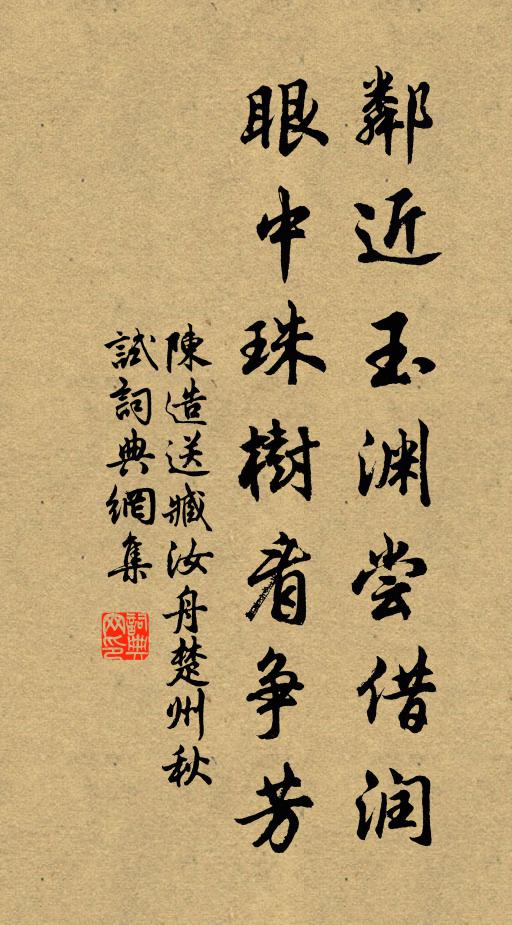 鄰近玉渊尝借润
眼中珠樹看争芳
陳造送臧汝舟楚州秋
試詞典網集
詞典网印